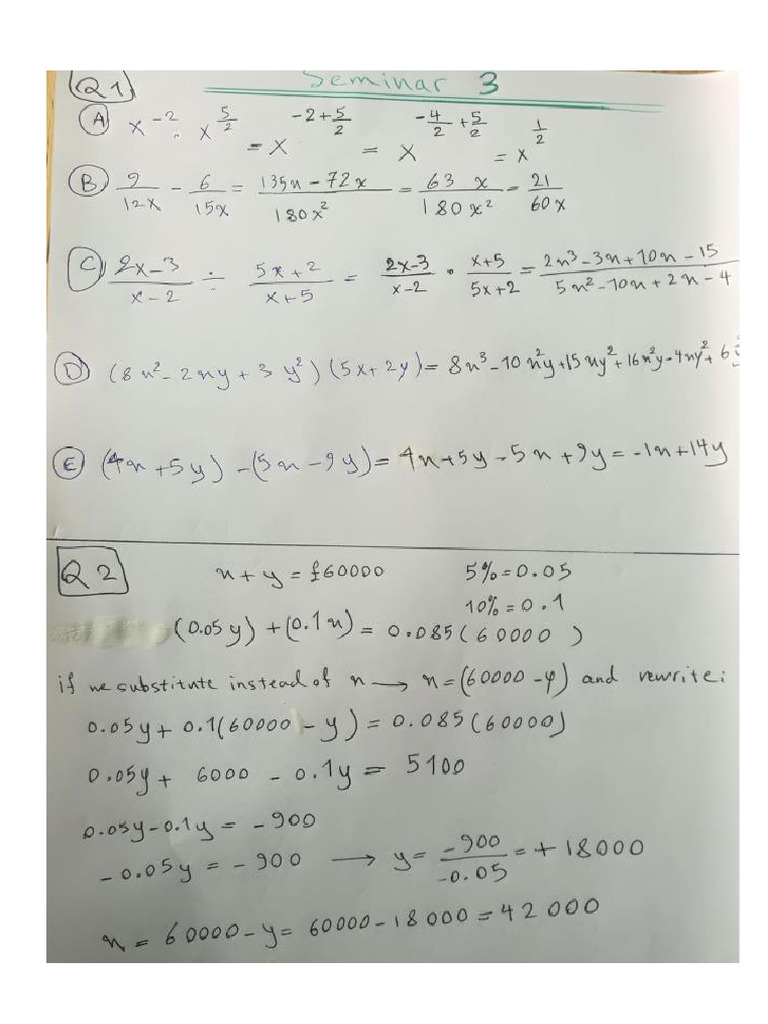 Seminar 3
Q1
A x^-2 . x^(5/2) = x^(-2+5/2) = x^(-4/2+5/2) = x^(1/2)
B 9/12x - 6/15x = (135x - 72x)/180x² = 63x/180x² = 21/60x
C (2x-3)/(x-2) ÷ (5x+2)/(x+5) = (2x-3)/(x-2) · (x+5)/(5x+2) = (2x³-3x+10x-15)/(5x²-10x+2x-4)
D (8x²-2xy+3y²)(5x+2y) = 8x³-10x²y+15xy²+16x²y-4xy²+6
E (4x+5y)-(5x-9y) = 4x+5y-5x+9y = -1x+14y
Q2 x+y = £60000 5%=0.05
10%=0.1
(0.05y)+(0.1x) = 0.085(60000)
if we substitute instead of x → x=(60000-y) and rewrite:
0.05y+0.1(60000-y) = 0.085(60000)
0.05y + 6000 - 0.1y = 5100
0.05y-0.1y = -900
-0.05y = -900 → y = -900/-0.05 = +18000
x = 60000-y = 60000-18000 = 42000